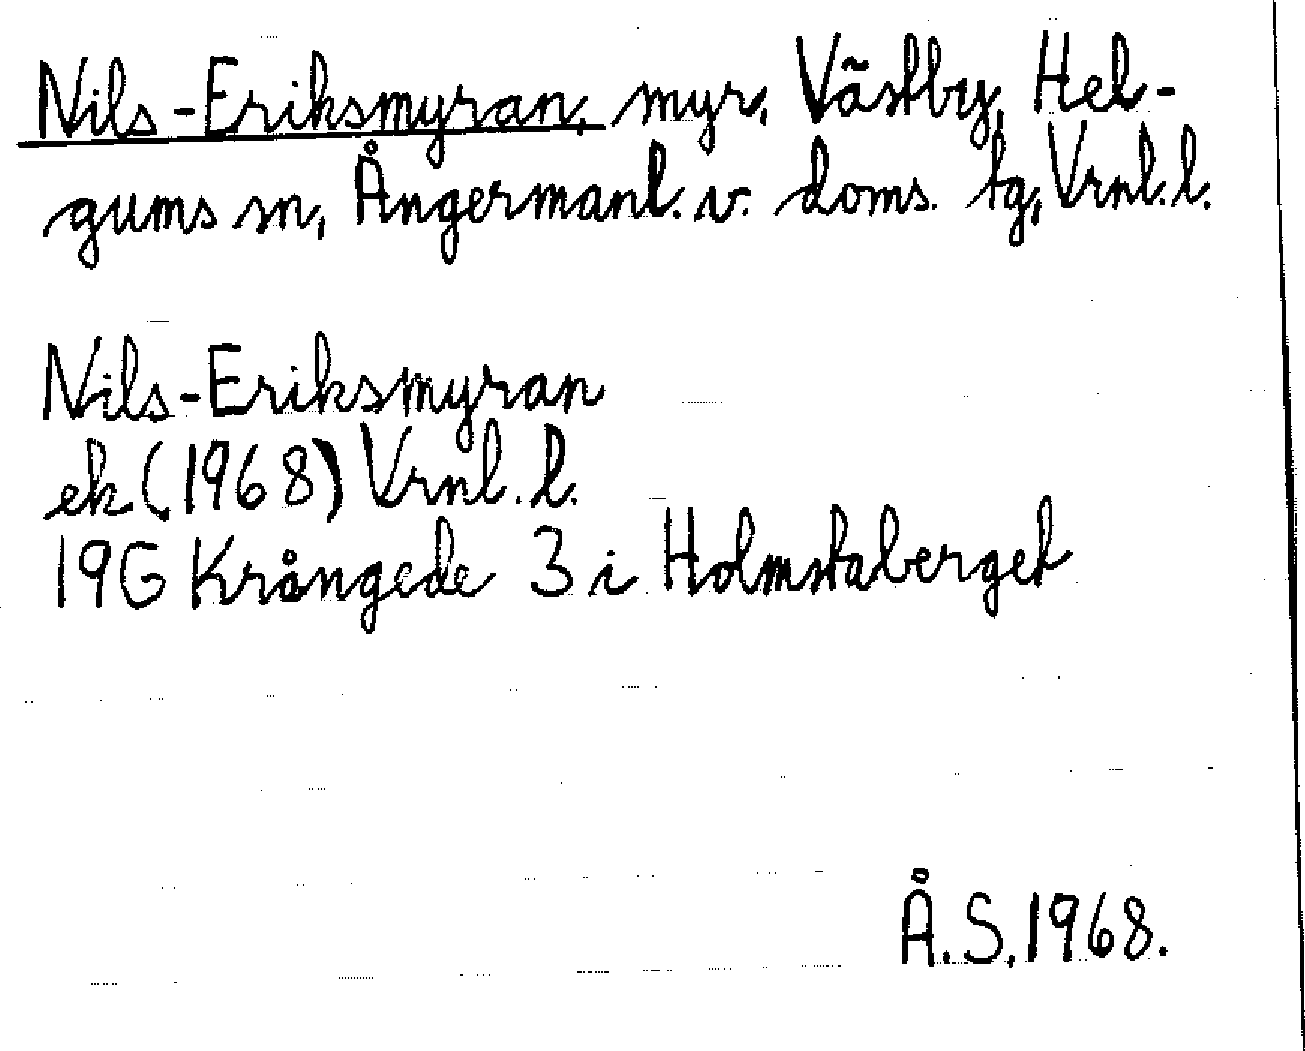 Nils-Eriksmyran, myr, Västby, Hel-
gums sn, Ångermanl. v. doms. tg, Vrnl. l.
Nils-Eriksmyran
ek (1968) Vrnl. l.
19G Krångede 3 i Holmstaberget
Å.S. 1968.